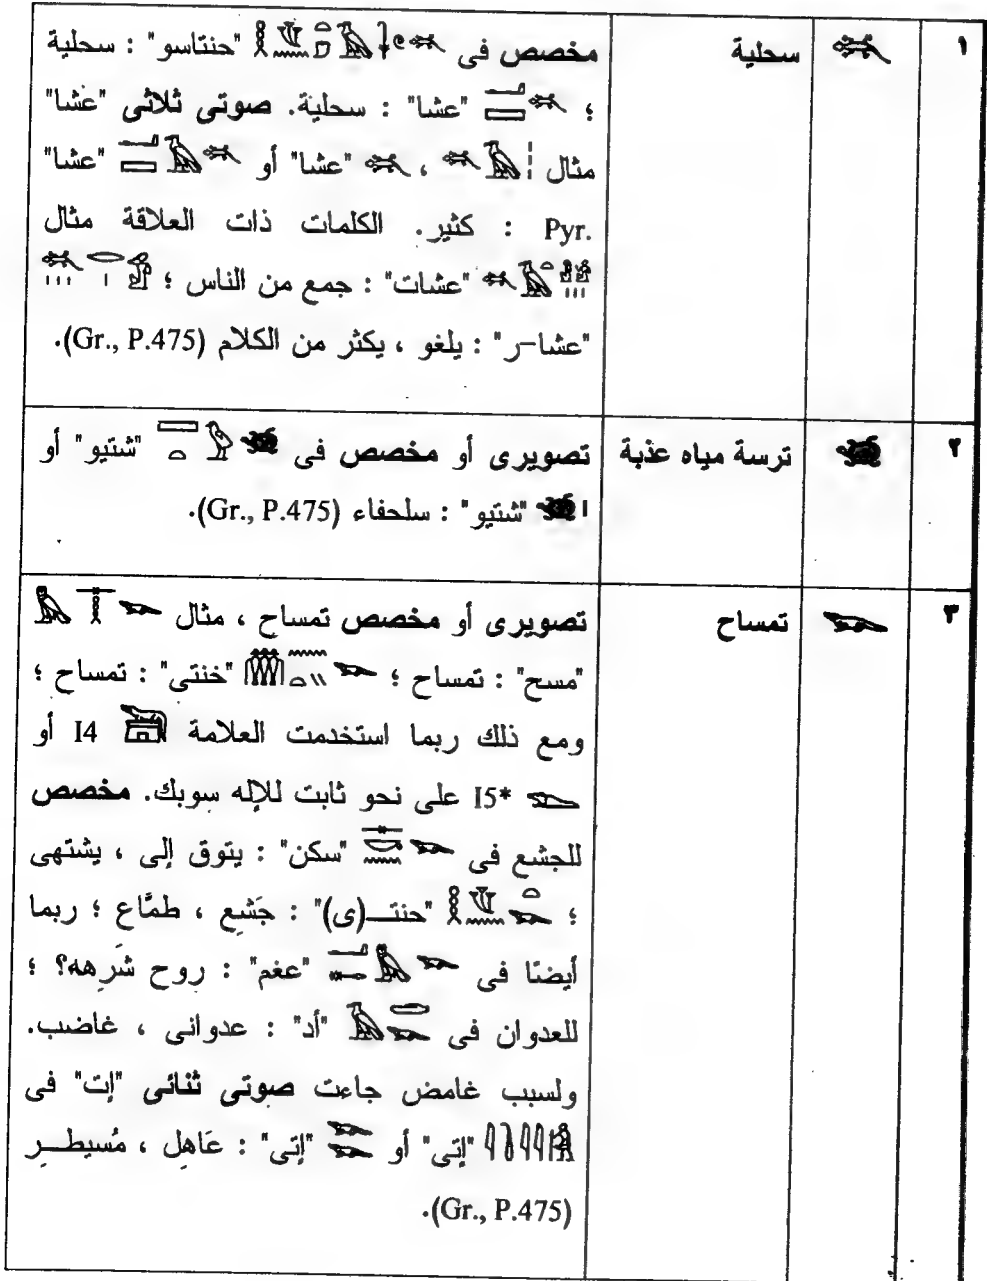 ١ 𓆈 سحلية مخصص فى "حنتاسو" : سحلية
؛ "عشا" : سحلية. صوتى ثلاثى "عشا"
مثال ، "عشا" أو "عشا"
Pyr. : كثير. الكلمات ذات العلاقة مثال
"عشات" : جمع من الناس ؛
"عشا-ر" : يلغو ، يكثر من الكلام (Gr., P.475).
٢ 𓆉 ترسة مياه عذبة تصويرى أو مخصص فى "شتيو" أو
"شتيو" : سلحفاء (Gr., P.475).
٣ 𓆊 تمساح تصويرى أو مخصص تمساح ، مثال
"مسح" : تمساح ؛ "خنتى" : تمساح ؛
ومع ذلك ربما استخدمت العلامة 𓆋 I4 أو
I5* على نحو ثابت للإله سوبك. مخصص
للجشع فى "سكن" : يتوق إلى ، يشتهى
؛ "حنتـــ(ى)" : جَشِع ، طمَّاع ؛ ربما
أيضًا فى "عغم" : روح شَرِهه؟ ؛
للعدوان فى "أد" : عدوانى ، غاضب.
ولسبب غامض جاءت صوتى ثنائى "إت" فى
"إتى" أو "إتى" : عَاهِل ، مُسيطــر
(Gr., P.475).